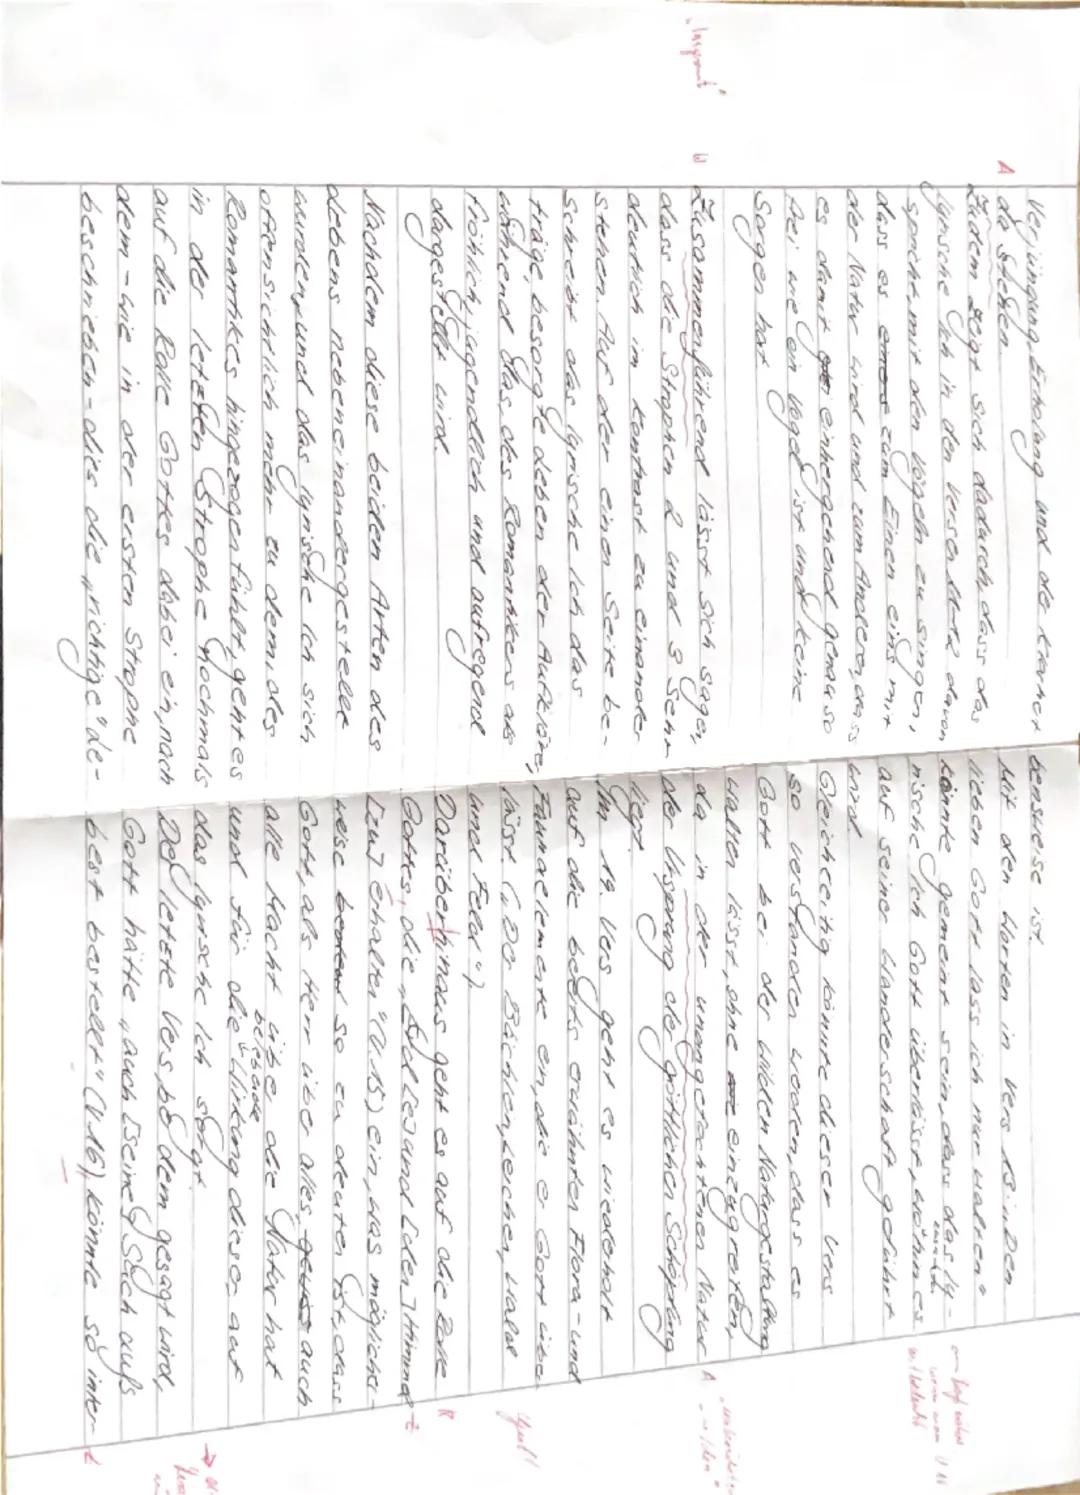 Verjüngung, Erholung und de Klarheit
da stehen.
Zudem zeigt sich dadurch, dass das
lyrische Ich in den Versen davon
spricht, mit den Vögeln zu singen,
dass es zum Einen eins mit
der Natur wird und zum Anderen, dass
es damit einhergehend genauso
frei wie ein Vogel ist und keine
Sorgen hat
Zusammenführend lässt sich sagen,
dass die Strophen 2 und 3 sehr
deutlich im Kontrast zu einander
stehen. Auf der einen Seite be-
schreibt das lyrische Ich das
träge, besorgte Leben der Aufklärer,
während das, des Romantikers als
fröhlich, jugendlich und aufregend
dargestellt wird.
Nachdem diese beiden Arten des
Lebens nebeneinandergestellt
wurden, und das lyrische Ich sich
offensichtlich mehr zu dem, des
Romantikes hingezogen fühlt, geht es
in der letzten Strophe nochmals
auf die Rolle Gottes dabei ein, nach
dem - wie in der ersten Strophe
beschrieben - dies die „richtige" Le-
bensweise ist.
Mit den Worten in Vers 13 „Den
lieben Gott lass ich nur walten"
könnte gemeint sein, dass das ly-
rische Ich Gott überlässt, wohin es
auf seiner Wanderschaft geführt
wird.
Gleichzeitig könnte dieser Vers
so verstanden werden, dass es
Gott bei der wilden Naturgestaltung
walten lässt, ohne einzugreifen,
da in der unangetasteten Natur
der Ursprung de göttlichen Schöpfung
liegt.
Im 14. Vers geht es wiederholt
auf die bereits erwähnten Flora- und
Faunaelemente ein, die e Gott über-
lässt („Der Bächlein, Lerchen, Wald
und Feld").
Darüberhinaus geht es auf die Rolle
Gottes, die „Erd [e] und [den] Himmel
[zu] erhalten" (V. 15) ein, was möglicher-
weise so zu deuten ist, dass
Gott, als Herr über alles auch
alle Macht übe die Natur hat
und für die belebende Wirkung dieser auf
das lyrische Ich sorgt.
Der letzte Vers, bei dem gesagt wird,
Gott hätte „auch [seine] Sach aufs
best bestellt" (V. 16), könnte so inter-
A
W
A
R
Z